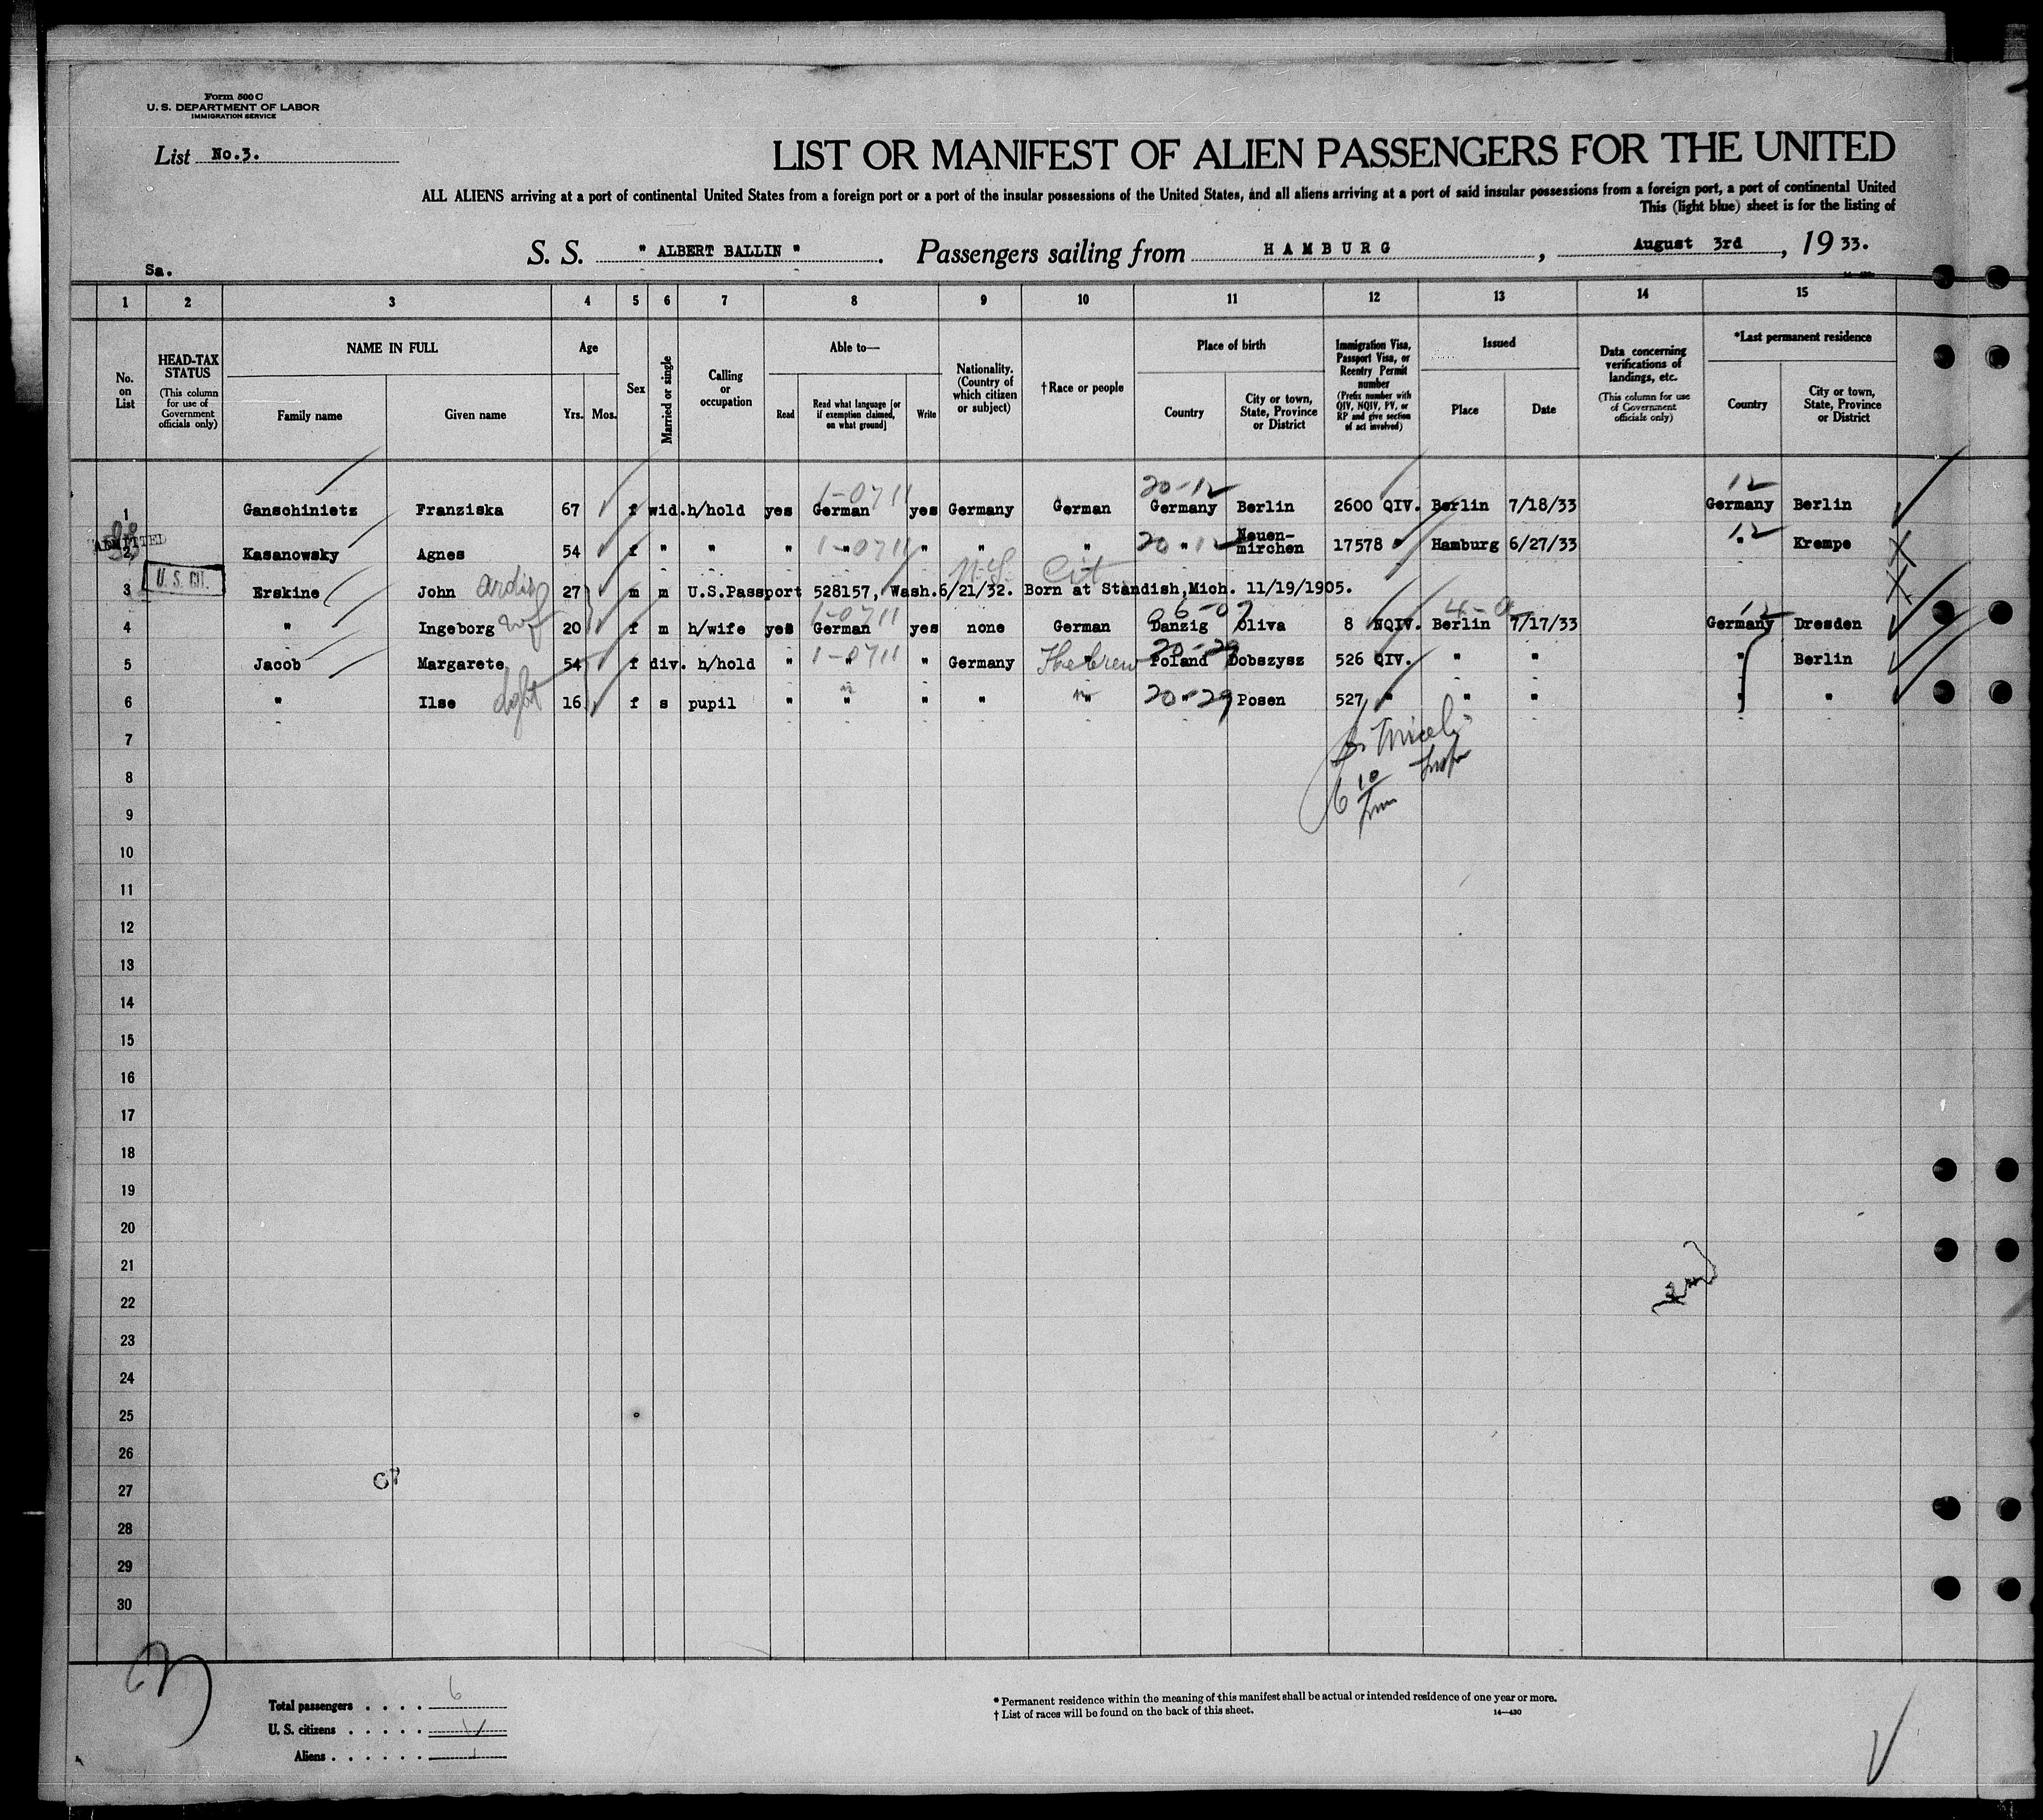 Form 500 C
U. S. DEPARTMENT OF LABOR
IMMIGRATION SERVICE
List No.3.
LIST OR MANIFEST OF ALIEN PASSENGERS FOR THE UNITED
ALL ALIENS arriving at a port of continental United States from a foreign port or a port of the insular possessions of the United States, and all aliens arriving at a port of said insular possessions from a foreign port, a port of continental United
This (light blue) sheet is for the listing of
S. S. " ALBERT BALLIN ". Passengers sailing from HAMBURG, August 3rd, 1933.
Sa.
1 2 3 4 5 6 7 8 9 10 11 12 13 14 15
No. on List
HEAD-TAX STATUS (This column for use of Government officials only)
NAME IN FULL
Family name Given name
Age
Yrs. Mos.
Sex
Married or single
Calling or occupation
Able to—
Read Read what language [or if exemption claimed, on what ground] Write
Nationality. (Country of which citizen or subject)
†Race or people
Place of birth
Country City or town, State, Province or District
Immigration Visa, Passport Visa, or Reentry Permit number (Prefix number with QIV, NQIV, PV, or RP and give section of act involved)
Issued
Place Date
Data concerning verifications of landings, etc. (This column for use of Government officials only)
*Last permanent residence
Country City or town, State, Province or District
1-0711 20-12 12
1 Ganschinietz Franziska 67 f wid. h/hold yes German yes Germany German Germany Berlin 2600 QIV. Berlin 7/18/33 Germany Berlin
ADMITTED
2 Kasanowsky Agnes 54 f " " " 1-0711 " " " " 20 " 12 Neuen-mirchen 17578 " Hamburg 6/27/33 12 " Krempe
U. S. CIT.
3 Erskine John 27 m m U.S.Passport 528157, Wash.6/21/32. Born at Standish,Mich. 11/19/1905.
1-0711
4 " Ingeborg wf 20 f m h/wife yes German yes none German Danzig Oliva 8 NQIV. Berlin 7/17/33 Germany Dresden
5 Jacob Margarete 54 f div. h/hold " 1-0711 " " Germany Hebrew Poland Dobszysz 526 QIV. " " " Berlin
6 " Ilse dght 16 f s pupil " " " " " 20-29 Posen 527 " " " " "
7
8
9
10
11
12
13
14
15
16
17
18
19
20
21
22
23
24
25
26
27
28
29
30
Total passengers . . . . 6
U. S. citizens . . . . .
Aliens . . . . . .
* Permanent residence within the meaning of this manifest shall be actual or intended residence of one year or more.
† List of races will be found on the back of this sheet. 14—430